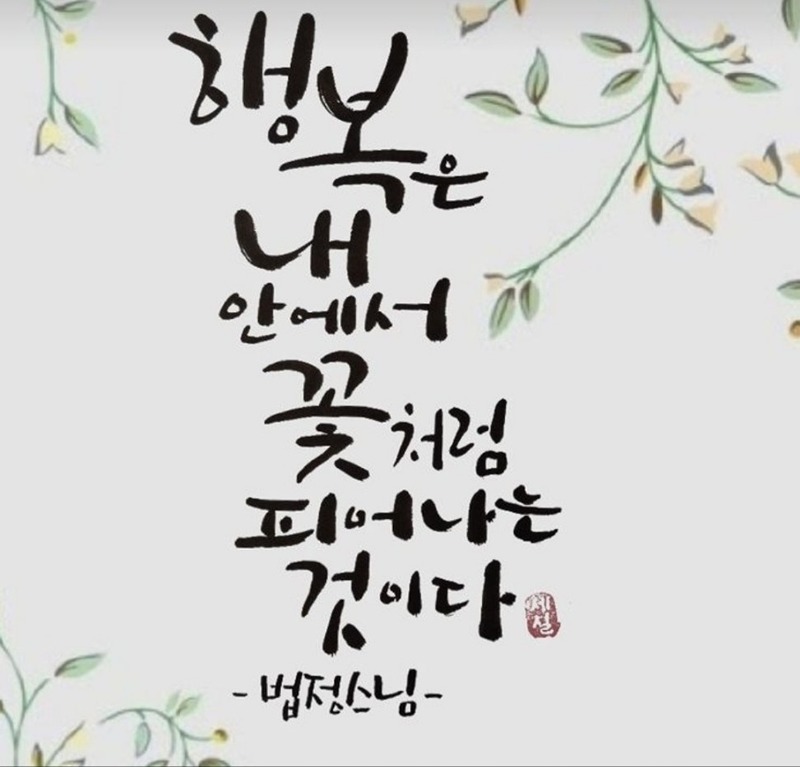 행복은
내
안에서
꽃처럼
피어나는
것이다
세철
-법정스님-